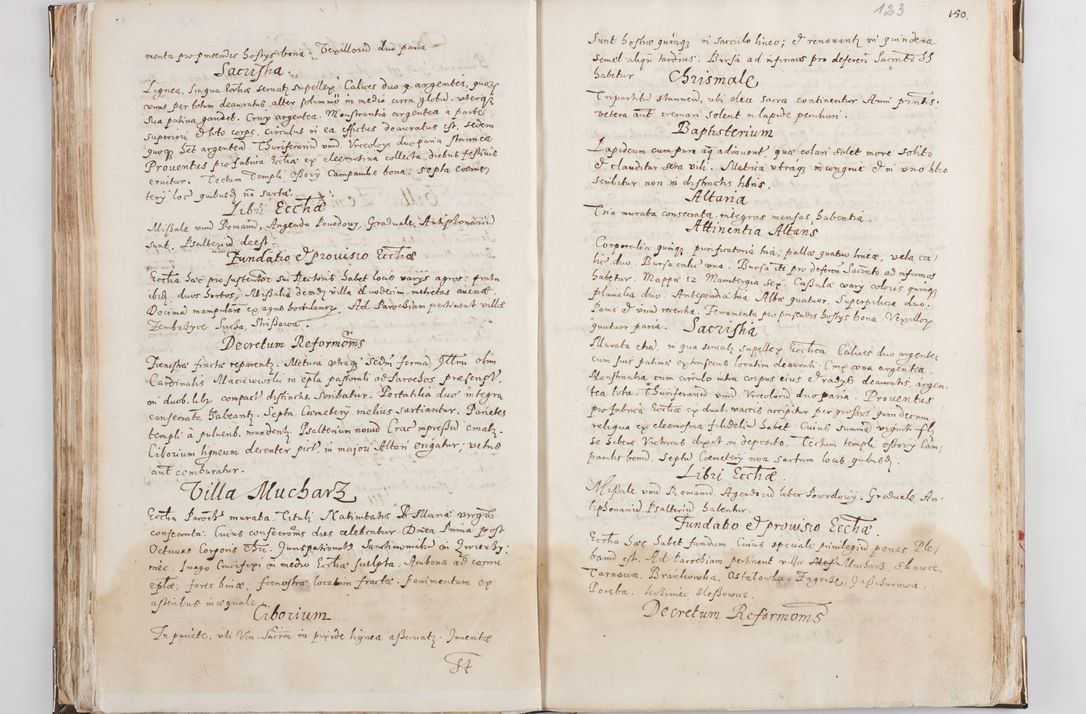 menta pro pinsendis hostys bona. Vexillorũ duo paria
Sacristia.
Lignea, in qua Ecclae servatʒ supellex. Calices duo argentei, quorʒ
unus per totum deauratus, alter solummõ in medio circa globũ, uterqʒ
sua patina gaudet. Crux argentea. Monstrantia argentea a parte
superiori et toto corpe, circulus in ea effictus deauratus est, sedem
quoqʒ hẽt argenteã. Thuriferariũ unũ. Vrceolorʒ duo paria stannea.
Proventus pro fabrica Ecclae ex eleemosina collecta, diebus festivis
eruitur. Tectum Templi, Ossorÿ Campanile bona: septa coemete
terÿ loc quibusdʒ nõ sarta.
Libri Ecctiæ
Missale unũ Romanũ, Angenda Powodowÿ, Graduale, Antiphonariũ
sunt. Psalteriũ deest.
Fundatio et provisio Ecctiæ
Ecctia hæc pro sustentõe sui Rectoris habet locis varÿs agros, prata
ibidʒ duos hortos, Missalia de villa
Decimã manipularẽ ex agris Ad Parochiam pertinent villæ
Zembrzÿce Sucha, Strissawa.
Decretum Reformõnis
Fenestræ fractæ reparentʒ. Metrica utraqʒ secdm formã Illmi olim
Cardinalis Maciciowski in epla pastorali ad Parochos præscript,
in duob. lib. compact distinctis scribatur. Portatilia duo integra
consecrata habeantʒ. Septa Coemeterÿ melius sartiantur. Parietes
templi à pulverib. mundentʒ. Psalterium novũ Crac impressũ ematʒ.
Ciborium ligneum decenter pict, in majori Altari erigatur; vetus
aut comburatur.
Villa Mucharz
Ecctia Paroch murata. Tituli Nativitatis B Mariæ Virginis
consecrata. Cuius consecrõnis dies celebratur Dnica Prima post
Octavas Corporis Chri. Jurispatronatʒ Sanctimonialiũ in Zwierzy:
niec. Imago Crucifixi in medio Ecctiæ sculpta, Ambona ad cornu
eplæ; fores binæ; foenestræ locatim fractæ. Pavimentum ex
asseribus inæquale.
Ciborium
In pariete, ubi Ven. Sacrm in pixide lignea asservatʒ. Inventæ
St

123 150.
Sunt hostiæ quinqʒ in sacculo lineo; et renovantʒ in quindena
semel aliqñ tardius. Bursa ad infirmos pro deferẽn Sacmto SS
habetur
Chrismale
Tripartitũ stanneũ, ubi olea sacra continentur Anni pñtis.
vetera aut cremari solent in lapide
Baptisterium
Lapideum cum pura aq adinvent, quæ colari solet more solito
et clauditur sera vili. Metrica utraqʒ incongrue et in uno libro
scribitur non in distinctis libris.
Altaria
Tria murata consecrata. integras mensas habentia.
Attinentia Altaris
Corporalia quinqʒ purificatoria tria, pallæ quatuor lineæ, vela ca
lic duo. Bursa calic una. Bursa itẽ pro deferẽn Sacmto ad infirmos
habetur. Mappæ 12 Mantergia sex. Casulæ varÿ coloris quinqʒ
pluvialia duo. Antependia tria Albæ quatuor. Superpilicia duo.
unũ recentia. Ferramenta pro pinsendis hostÿs bona. Vexillorʒ
quatuor paria.
Sacristia
Murata etiã, in qua servatʒ supellex Ecctica. Calices duo argente:
cum suis patinis extrinsecus locatim deaurati. Crux una argentea.
Monstrantia cum circulo intra corpus eius et radÿs deauratis, argen:
tea tota. Thuriferariũ unũ. Vrceolorũ duo paria. Proventus
pro fabrica Ecctiæ ex duab. vaccis accipitur per grossos quindecim
reliqua ex eleemosina fidelium habet. Cuius summã viginti fl.
se habere Vitricus dixit in deposito. Tectum templi, ossorÿ Cam:
panilis bonũ. Septũ Coemeterÿ non sartum locis quibusdʒ.
Libri Ecctiæ.
Missale unũ Romanũ. Agendorũ liber Powodowÿ. Graduale An:
tiphonariũ Psalteriũ habentur.
Fundatio et provisio Ecctiæ.
Ecctia hæc habet fundum Cuius speciale privilegiũ penes Ple:
banũ est. Ad Parochiam pertinent villæ Mucharz, Skawce,
Tarnawa, Brankowka, Ostalowka, Zagorze, Jaszczurowa,
Poręba, Koziniec, Slessowic.
Decretum Reformõnis